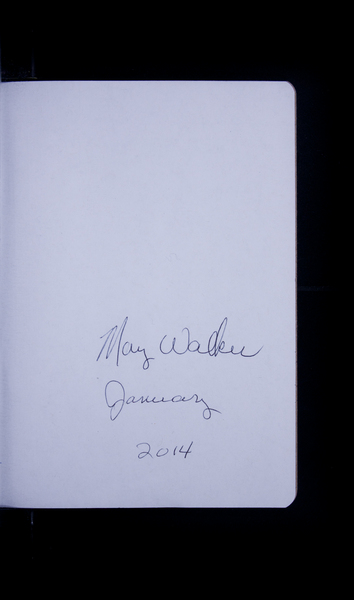 May Walker
January
2014